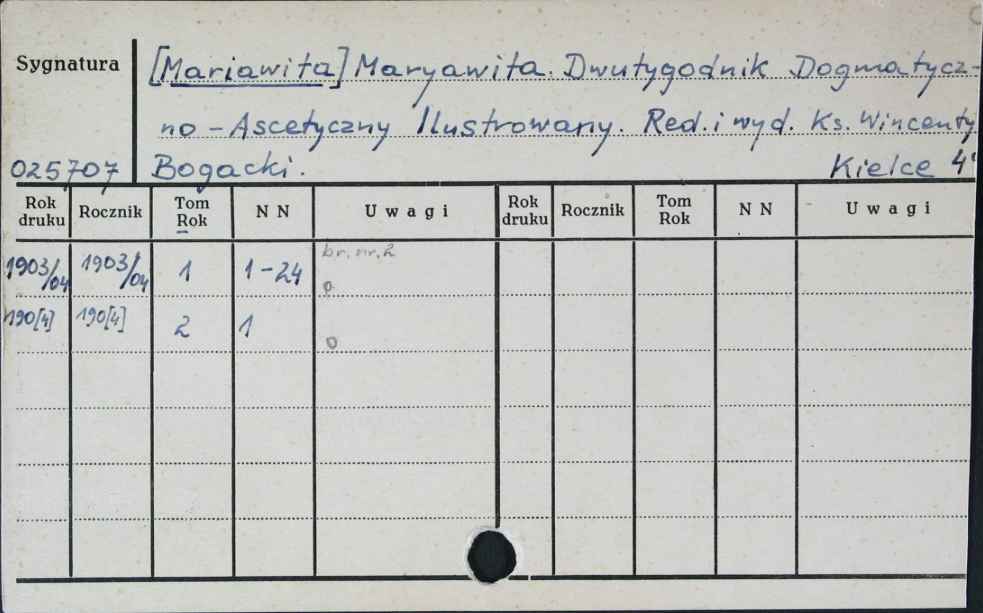 Sygnatura
[Mariawita] Maryawita. Dwutygodnik Dogmatycz-
no - Ascetyczny Ilustrowany. Red. i wyd. Ks. Wincenty
025707 Bogacki. Kielce 4°
Rok druku Rocznik Tom Rok N N Uwagi Rok druku Rocznik Tom Rok N N Uwagi
1903/04 1903/04 1 1-24 br. nr. 2
o
190[4] 190[4] 2 1
o